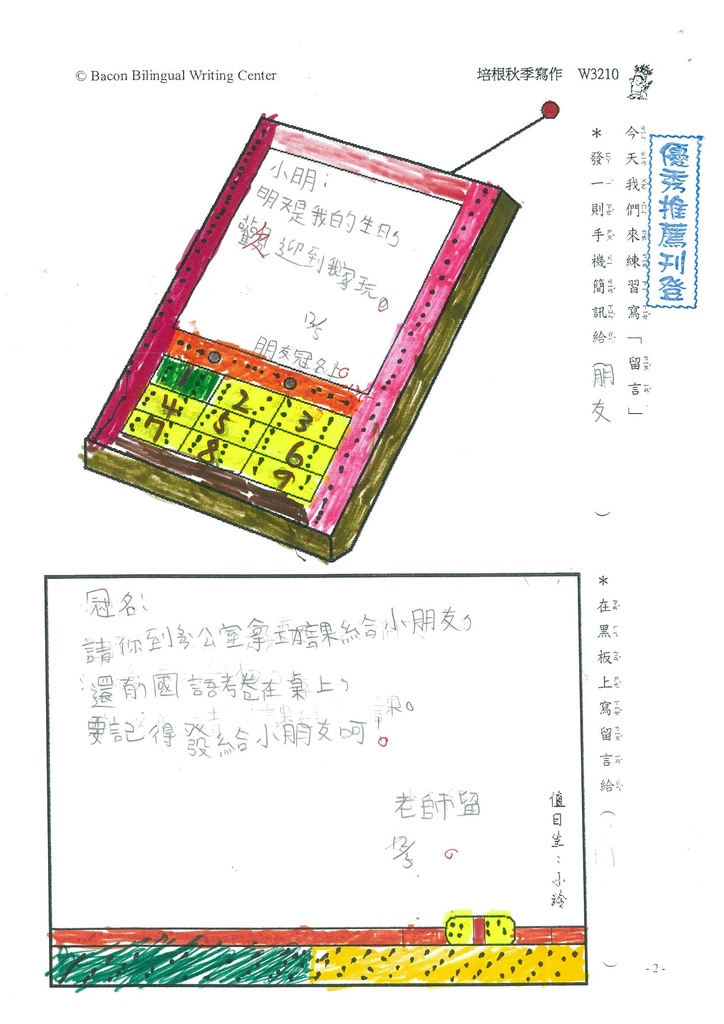 © Bacon Bilingual Writing Center
培根秋季寫作 W3210
優秀推薦刊登
今天我們來練習寫「留言」
＊發一則手機簡訊給（朋友）
小明：
明天是我的生日，
歡迎到我家玩。
12/5
朋友冠名上。
1
2
3
4
5
6
7
8
9
＊在黑板上寫留言給（
）
冠名：
請你到公室拿功課給小朋友，
還有國語考卷在桌上，
要記得發給小朋友呵。
老師留
12/5
值日生：小玲
-2-